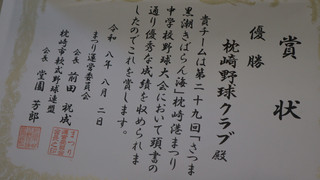 賞状
優勝
枕崎野球クラブ殿
貴チームは第二十九回「さつま
黒潮きばらん海」枕崎港まつり
中学校野球大会において頭書の
通り優秀な成績を収められま
したのでこれを賞します。
令和八年八月二日
まつり運営委員会
会長 前田祝成
枕崎市軟式野球連盟
会長 堂園芳郎